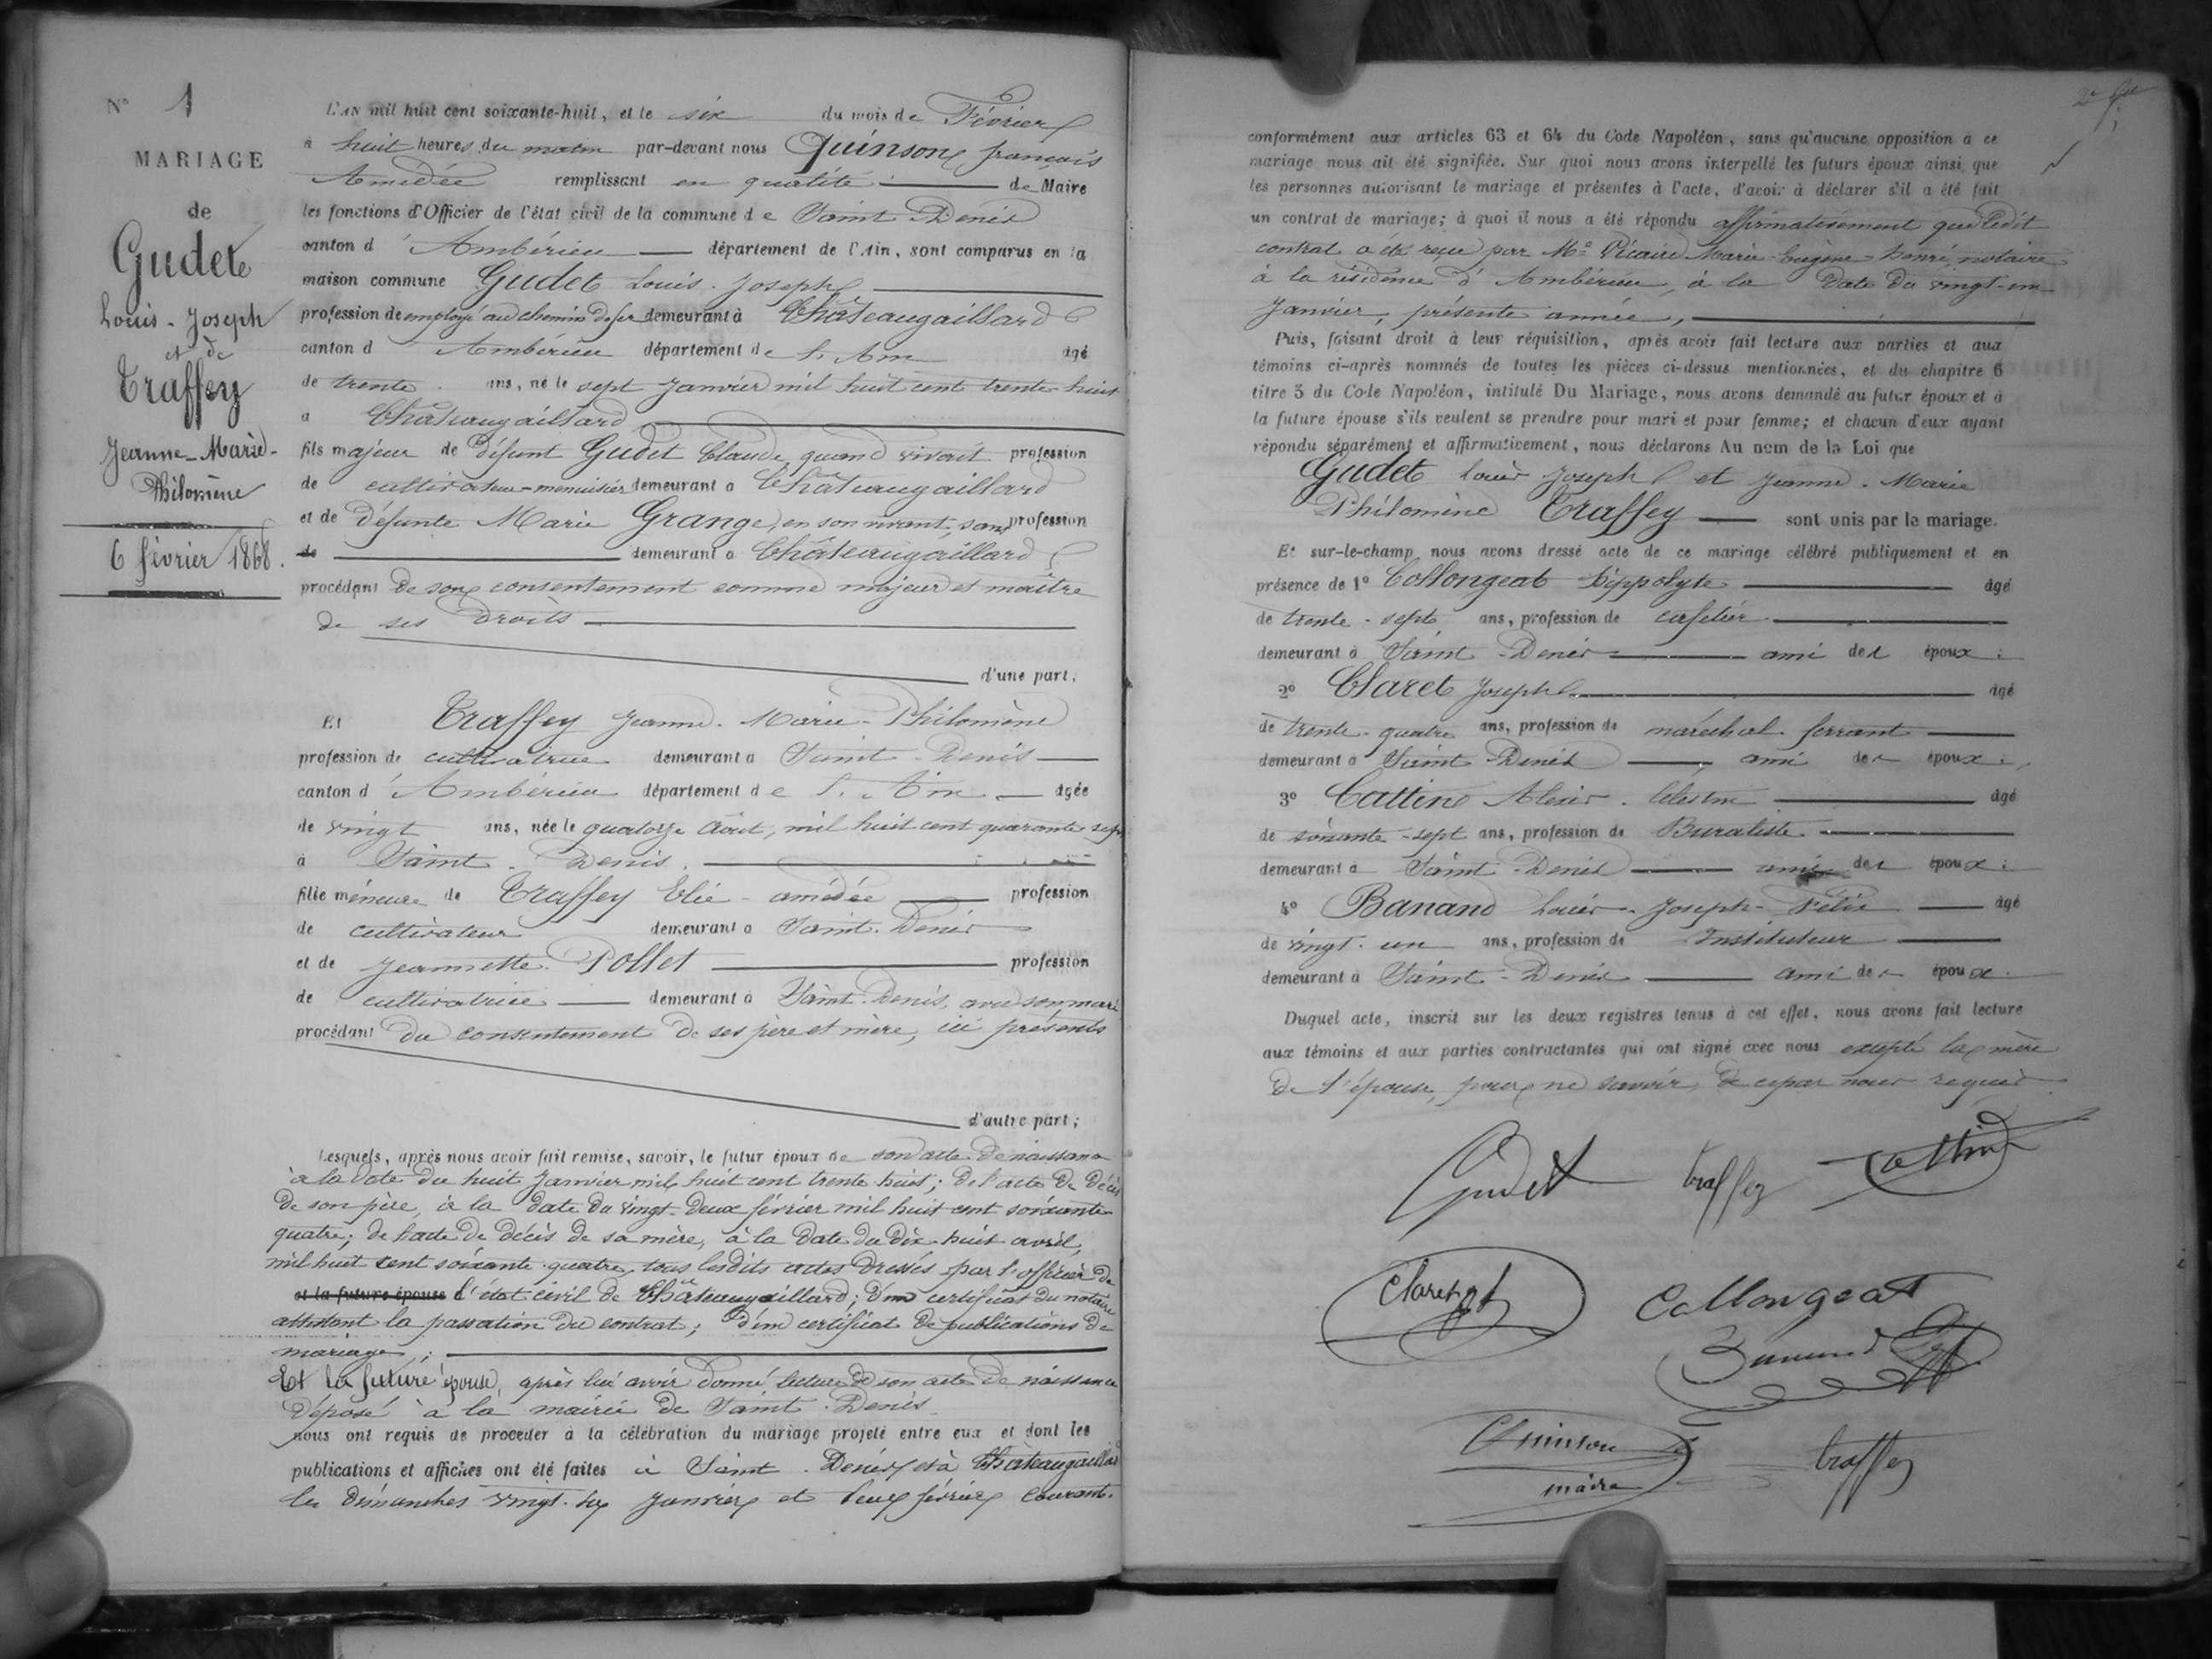 N° 1
MARIAGE
de
Gudet
Louis-Joseph
et de
Traffey
Jeanne-Marie-
Philomène
6 février 1868.
L'AN mil huit cent soixante-huit, et le six du mois de Février
à huit heures du matin par-devant nous Quinson françois
Amédée remplissant en qualité de Maire
les fonctions d'Officier de l'état civil de la commune de Saint-Denis
canton d'Ambérieu département de l'Ain, sont comparus en la
maison commune Gudet Louis-Joseph
profession de employé au chemin de fer demeurant à Châteaugaillard
canton d'Ambérieu département de l'Ain âgé
de trente ans, né le sept Janvier mil huit cent trente-huit
à Châteaugaillard
fils majeur de défunt Gudet Claude, quand vivait profession
de cultivateur-menuisier demeurant à Châteaugaillard
et de défunte Marie Grange, en son vivant, sans profession
de demeurant à Châteaugaillard
procédant de son consentement comme majeur et maître
de ses droits
d'une part,
Et Traffey Jeanne-Marie-Philomène
profession de cultivatrice demeurant à Saint-Denis
canton d'Ambérieu département de l'Ain âgée
de vingt ans, née le quatorze Août, mil huit cent quarante-sept
à Saint-Denis.
fille mineure de Traffey Elie-amédée profession
de cultivateur demeurant à Saint-Denis
et de Jeannette Pollet profession
de cultivatrice demeurant à Saint-Denis, avec son mari
procédant du consentement de ses père et mère, ici présents
d'autre part;
Lesquels, après nous avoir fait remise, savoir, le futur époux de son acte de naissance
à la date du huit Janvier mil huit cent trente-huit; de l'acte de décès
de son père, à la date du vingt-deux février mil huit cent soixante
quatre; de l'acte de décès de sa mère, à la date du dix-huit avril,
mil huit cent soixante-quatre, tous lesdits actes dressés par l'officier de
et la future épouse l'état civil de Châteaugaillard; d'un certificat du notaire
attestant la passation du contrat; d'un certificat de publications de
mariage;
Et la future épouse, après lui avoir donné lecture de son acte de naissance
déposé à la mairie de Saint-Denis
nous ont requis de procéder à la célébration du mariage projeté entre eux et dont les
publications et affiches ont été faites à Saint-Denis et à Châteaugaillard
les dimanches vingt-six Janvier et deux février courant.
conformément aux articles 63 et 64 du Code Napoléon, sans qu'aucune opposition à ce
mariage nous ait été signifiée. Sur quoi nous avons interpellé les futurs époux ainsi que
les personnes autorisant le mariage et présentes à l'acte, d'avoir à déclarer s'il a été fait
un contrat de mariage; à quoi il nous a été répondu affirmativement que ledit
contrat a été reçu par Me Vicaire Marie-Eugène-Henri, notaire
à la résidence d'Ambérieu, à la date du vingt-un
Janvier, présente année,
Puis, faisant droit à leur réquisition, après avoir fait lecture aux parties et aux
témoins ci-après nommés de toutes les pièces ci-dessus mentionnées, et du chapitre 6
titre 5 du Code Napoléon, intitulé Du Mariage, nous avons demandé au futur époux et à
la future épouse s'ils veulent se prendre pour mari et pour femme; et chacun d'eux ayant
répondu séparément et affirmativement, nous déclarons Au nom de la Loi que
Gudet Louis Joseph et Jeanne-Marie
Philomène Traffey sont unis par le mariage.
Et sur-le-champ nous avons dressé acte de ce mariage célébré publiquement et en
présence de 1° Collongeat Hippolyte âgé
de trente-sept ans, profession de cafetier
demeurant à Saint-Denis ami des époux;
2° Claret Joseph âgé
de trente-quatre ans, profession de maréchal-ferrant
demeurant à Saint-Denis, ami des époux;
3° Cattin Alexis-Célestin âgé
de soixante-sept ans, profession de Buraliste
demeurant à Saint-Denis ami des époux;
4° Banand Louis-Joseph-Félix âgé
de vingt-un ans, profession de Instituteur
demeurant à Saint-Denis ami des époux.
Duquel acte, inscrit sur les deux registres tenus à cet effet, nous avons fait lecture
aux témoins et aux parties contractantes qui ont signé avec nous excepté la mère
de l'épouse, pour ne savoir, de ce par nous requis
Gudet traffey Cattin
Claret Collongeat
Banand
Quinson
maire
traffey